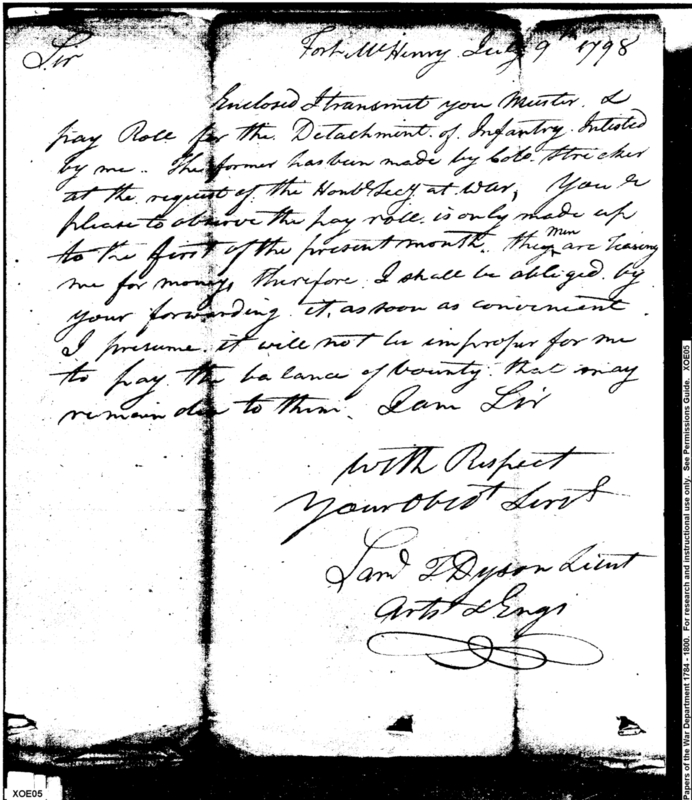 Fort McHenry July 9th 1798
Sir
Enclosed I transmit you Muster &
pay Roll for the Detachment of Infantry Inlisted
by me.. The former has been made by Colo. Stricker
at the request of the Honble Secy at War, You'l
please to observe the pay roll is only made up
to the first of the present month. they Men are teasing
me for money, therefore I shall be obliged by
your forwarding it, as soon as convenient.
I presume it will not be improper for me
to pay the balance of bounty that may
remain due to them. I am Sir
with Respect
Your Obdt Servt
Saml T Dyson Lieut
Arts & Engs
XOE05
Papers of the War Department 1784 - 1800. For research and instructional use only. See Permissions Guide. XOE05